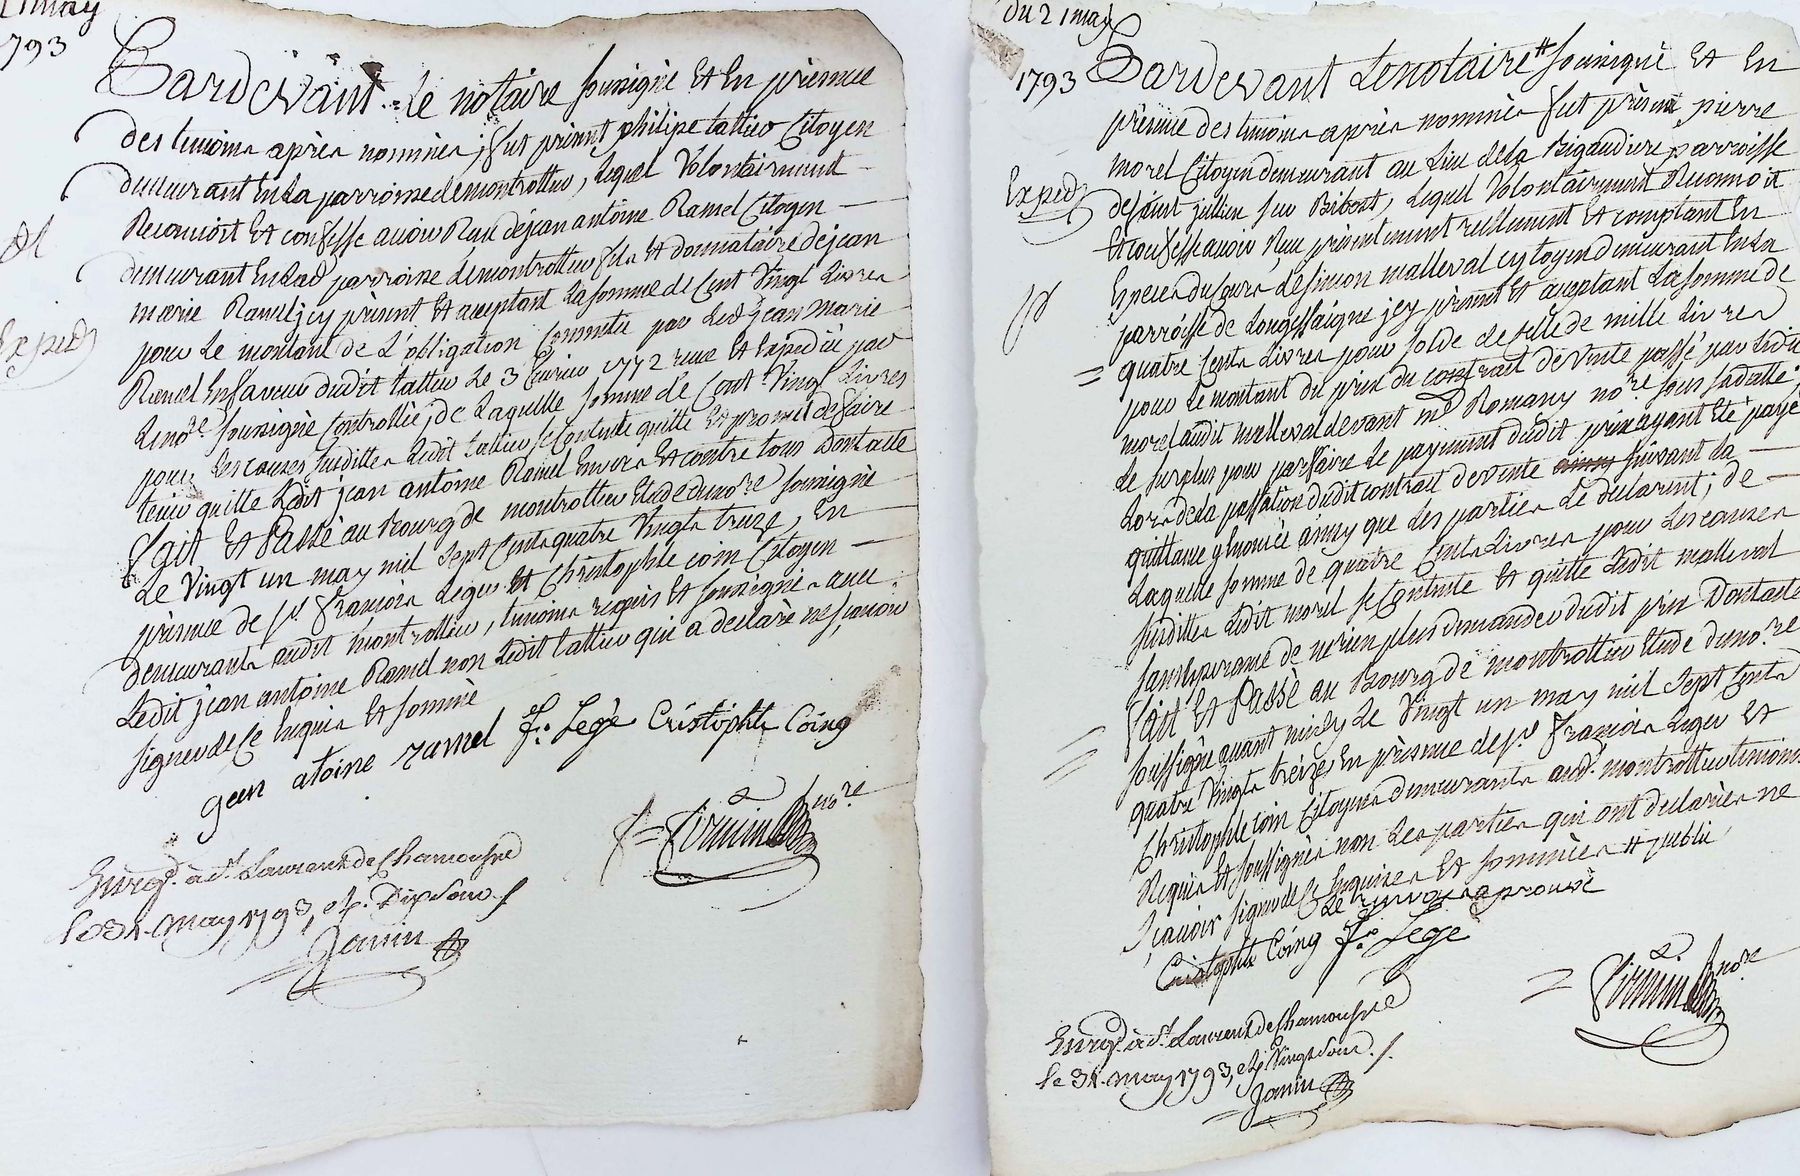 21 may
1793
Pardevant Le notaire soussigné Et En présence
des temoins après nommés fut présent philipe lattier Citoyen
demeurant En La parroisse de montrottier, lequel Volontairement
Reconnoit Et confesse avoir Reçu de jean antoine Ramel Citoyen
demeurant En Lad parroisse de montrottier fils Et donnataire de jean
marie Ramel jcy présent Et aceptant La somme de Cent Vingt Livres
pour Le montant de L'obligation Consentie par Led jean Marie
Ramel En faveur dudit lattier Le 3 fevrier 1772 reçue Et Expediée par
Le no.re soussigné Controllée, de Laquelle somme de Cent Vingt Livres
pour Les causes susdittes Ledit lattier se Contente quitte Et promet de faire
tenir quitte Ledit jean antoine Ramel Envers Et contre tous Dont acte
fait Et Passé au Bourg de montrottier Etude du no.re soussigné
Le Vingt un may mil sept Cents quatre Vingts treize, En
présence de s.r François Leger Et Christophle coin Citoyen
demeurants audit montrottier, temoins requis Et soussignés avec
Ledit jean antoine Ramel non Ledit lattier qui a declaré ne sçavoir
signer de ce Enquis Et sommé
Exped
gean atoine ramel f.s Legé Cristophle Coing
Firmin no.re
Enreg. à S.t Laurent de Chamousset
le 31 May 1793, r. Dix sous
Janin
du 21 may
1793
Pardevant Le notaire # soussigné Et En
présence des temoins après nommés fut présent pierre
morel Citoyen demeurant au Lieu de la Rigaudiere parroisse
de saint jullien sur Bibost, lequel Volontairement Reconnoit
Et confesse avoir Reçu présentement réellement Et comptant En
Especes du Cours de Simon malleval cytoyen demeurant En La
parroisse de Longessaigne jcy présent Et aceptant La somme de
quatre Cents Livres pour solde de celle de mille Livres
pour Le montant du prix du contrat de Vente passé par Ledit
morel audit malleval devant m.e Romany no.re sous sa datte,
Le surplus pour parfaire Le payement dudit prix ayant Eté payé
Lors de la passation dudit contrat de vente suivant La
quittance y Enoncée ainsy que Les parties Le declarent; de
Laquelle somme de quatre Cents Livres pour Les causes
susdittes Ledit morel se Contente Et quitte Ledit malleval
sans Esperance de ne rien plus demander dudit prix Dont acte
fait Et Passé au Bourg de montrottier Etude du no.re
soussigné avant midy Le Vingt un may mil sept Cents
quatre Vingts treize, En présence de s.r François Leger Et
Christophle coin Citoyens demeurants aud. montrottier temoins
Requis Et soussignés non Les parties qui ont declarées ne
sçavoir signer de ce Enquises Et sommées # public
Le renvoy aprouvé
Exped
Cristophle Coing f.s Legé
Firmin no.re
Enreg. à S.t Laurent de Chamousset
le 31 May 1793, r. Vingt sous
Janin